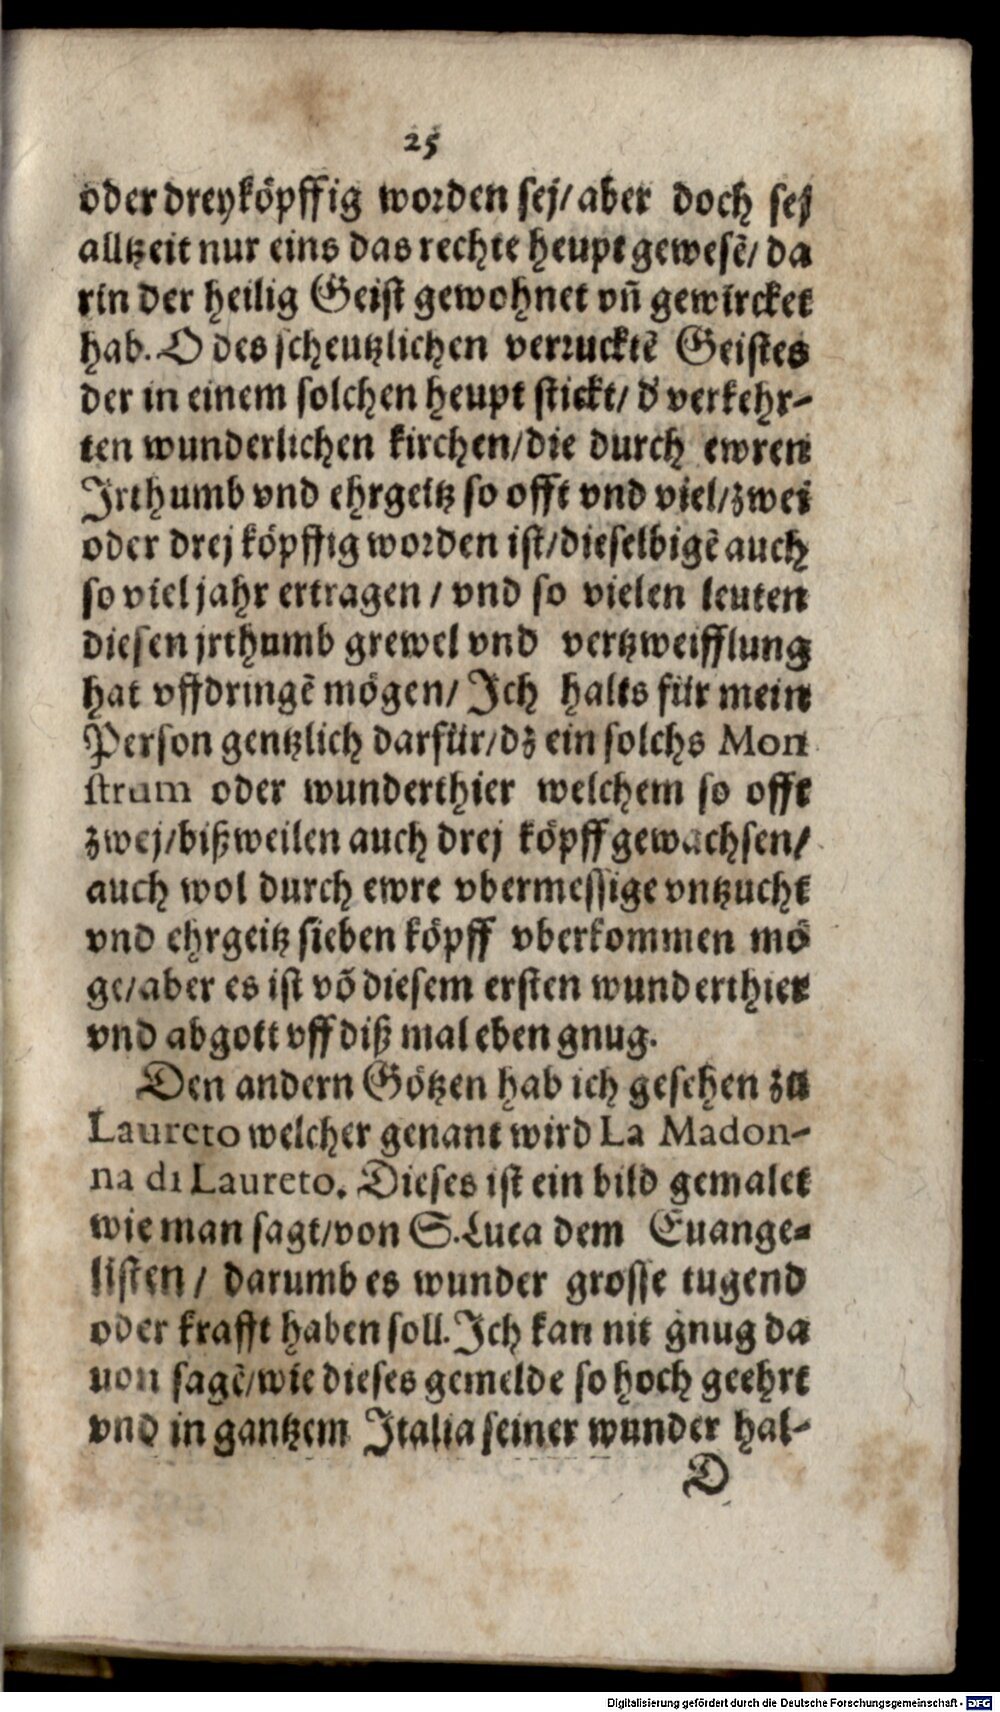 25
oder dreyköpffig worden sej/ aber doch sej
alltzeit nur eins das rechte heupt gewesẽ/ da
rin der heilig Geist gewohnet vñ gewircket
hab. O des scheutzlichen verrucktẽ Geistes
der in einem solchen heupt stickt/ d' verkehr-
ten wunderlichen kirchen/ die durch ewren
Irthumb vnd ehrgeitz so offt vnd viel/ zwei
oder drej köpffig worden ist/ dieselbigẽ auch
so viel jahr ertragen / vnd so vielen leuten
diesen jrthumb grewel vnd vertzweifflung
hat vffdringẽ mögen/ Ich halts für mein
Person gentzlich darfür/ dz ein solchs Mon
strum oder wunderthier welchem so offt
zwej/ bißweilen auch drej köpff gewachsen/
auch wol durch ewre vbermessige vntzucht
vnd ehrgeitz sieben köpff vberkommen mö
ge/ aber es ist võ diesem ersten wunderthier
vnd abgott vff diß mal eben gnug.
Den andern Götzen hab ich gesehen zu
Laureto welcher genant wird La Madon-
na di Laureto. Dieses ist ein bild gemalet
wie man sagt/ von S. Luca dem Euange-
listen / darumb es wunder grosse tugend
oder krafft haben soll. Ich kan nit gnug da
uon sagẽ/ wie dieses gemelde so hoch geehrt
vnd in gantzem Italia seiner wunder hal-
D
Digitalisierung gefördert durch die Deutsche Forschungsgemeinschaft - DFG